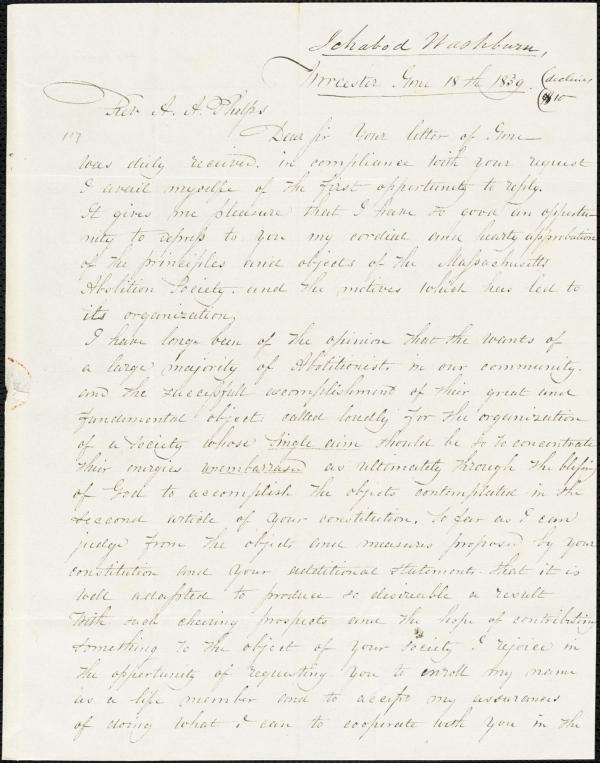 Ichabod Washburn,
Worcester June 18th 1839. (declines
$10
Rev. A. A. Phelps
117
Dear Sir Your letter of June
was duly received. in compliance with your request
I avail myselfe of the first opportunity to reply.
It gives me pleasure that I have so good an opportu-
nity to express to you my cordial and hearty approbation
of the principles and objects of the Massachusetts
Abolition Society. and the motives which has led to
its organization.
I have long been of the opinion that the wants of
a large majority of Abolitionists in our community.
and the successfull accomplishment of their great and
fundamental object called loudly for the organization
of a Society whose single aim should be so to concentrate
their energies unembarrased as ultimately through the blessing
of God to accomplish the objects contemplated in the
second article of your constitution. So far as I can
judge from the objects and measures proposed by your
constitution and your additional statements. that it is
well adapted to produce so desireable a result
With such cheering prospects and the hope of contributing
something to the object of your Society I rejoice in
the opportunity of requesting you to enroll my name
as a life member and to accept my assurances
of doing what I can to cooperate with you in the